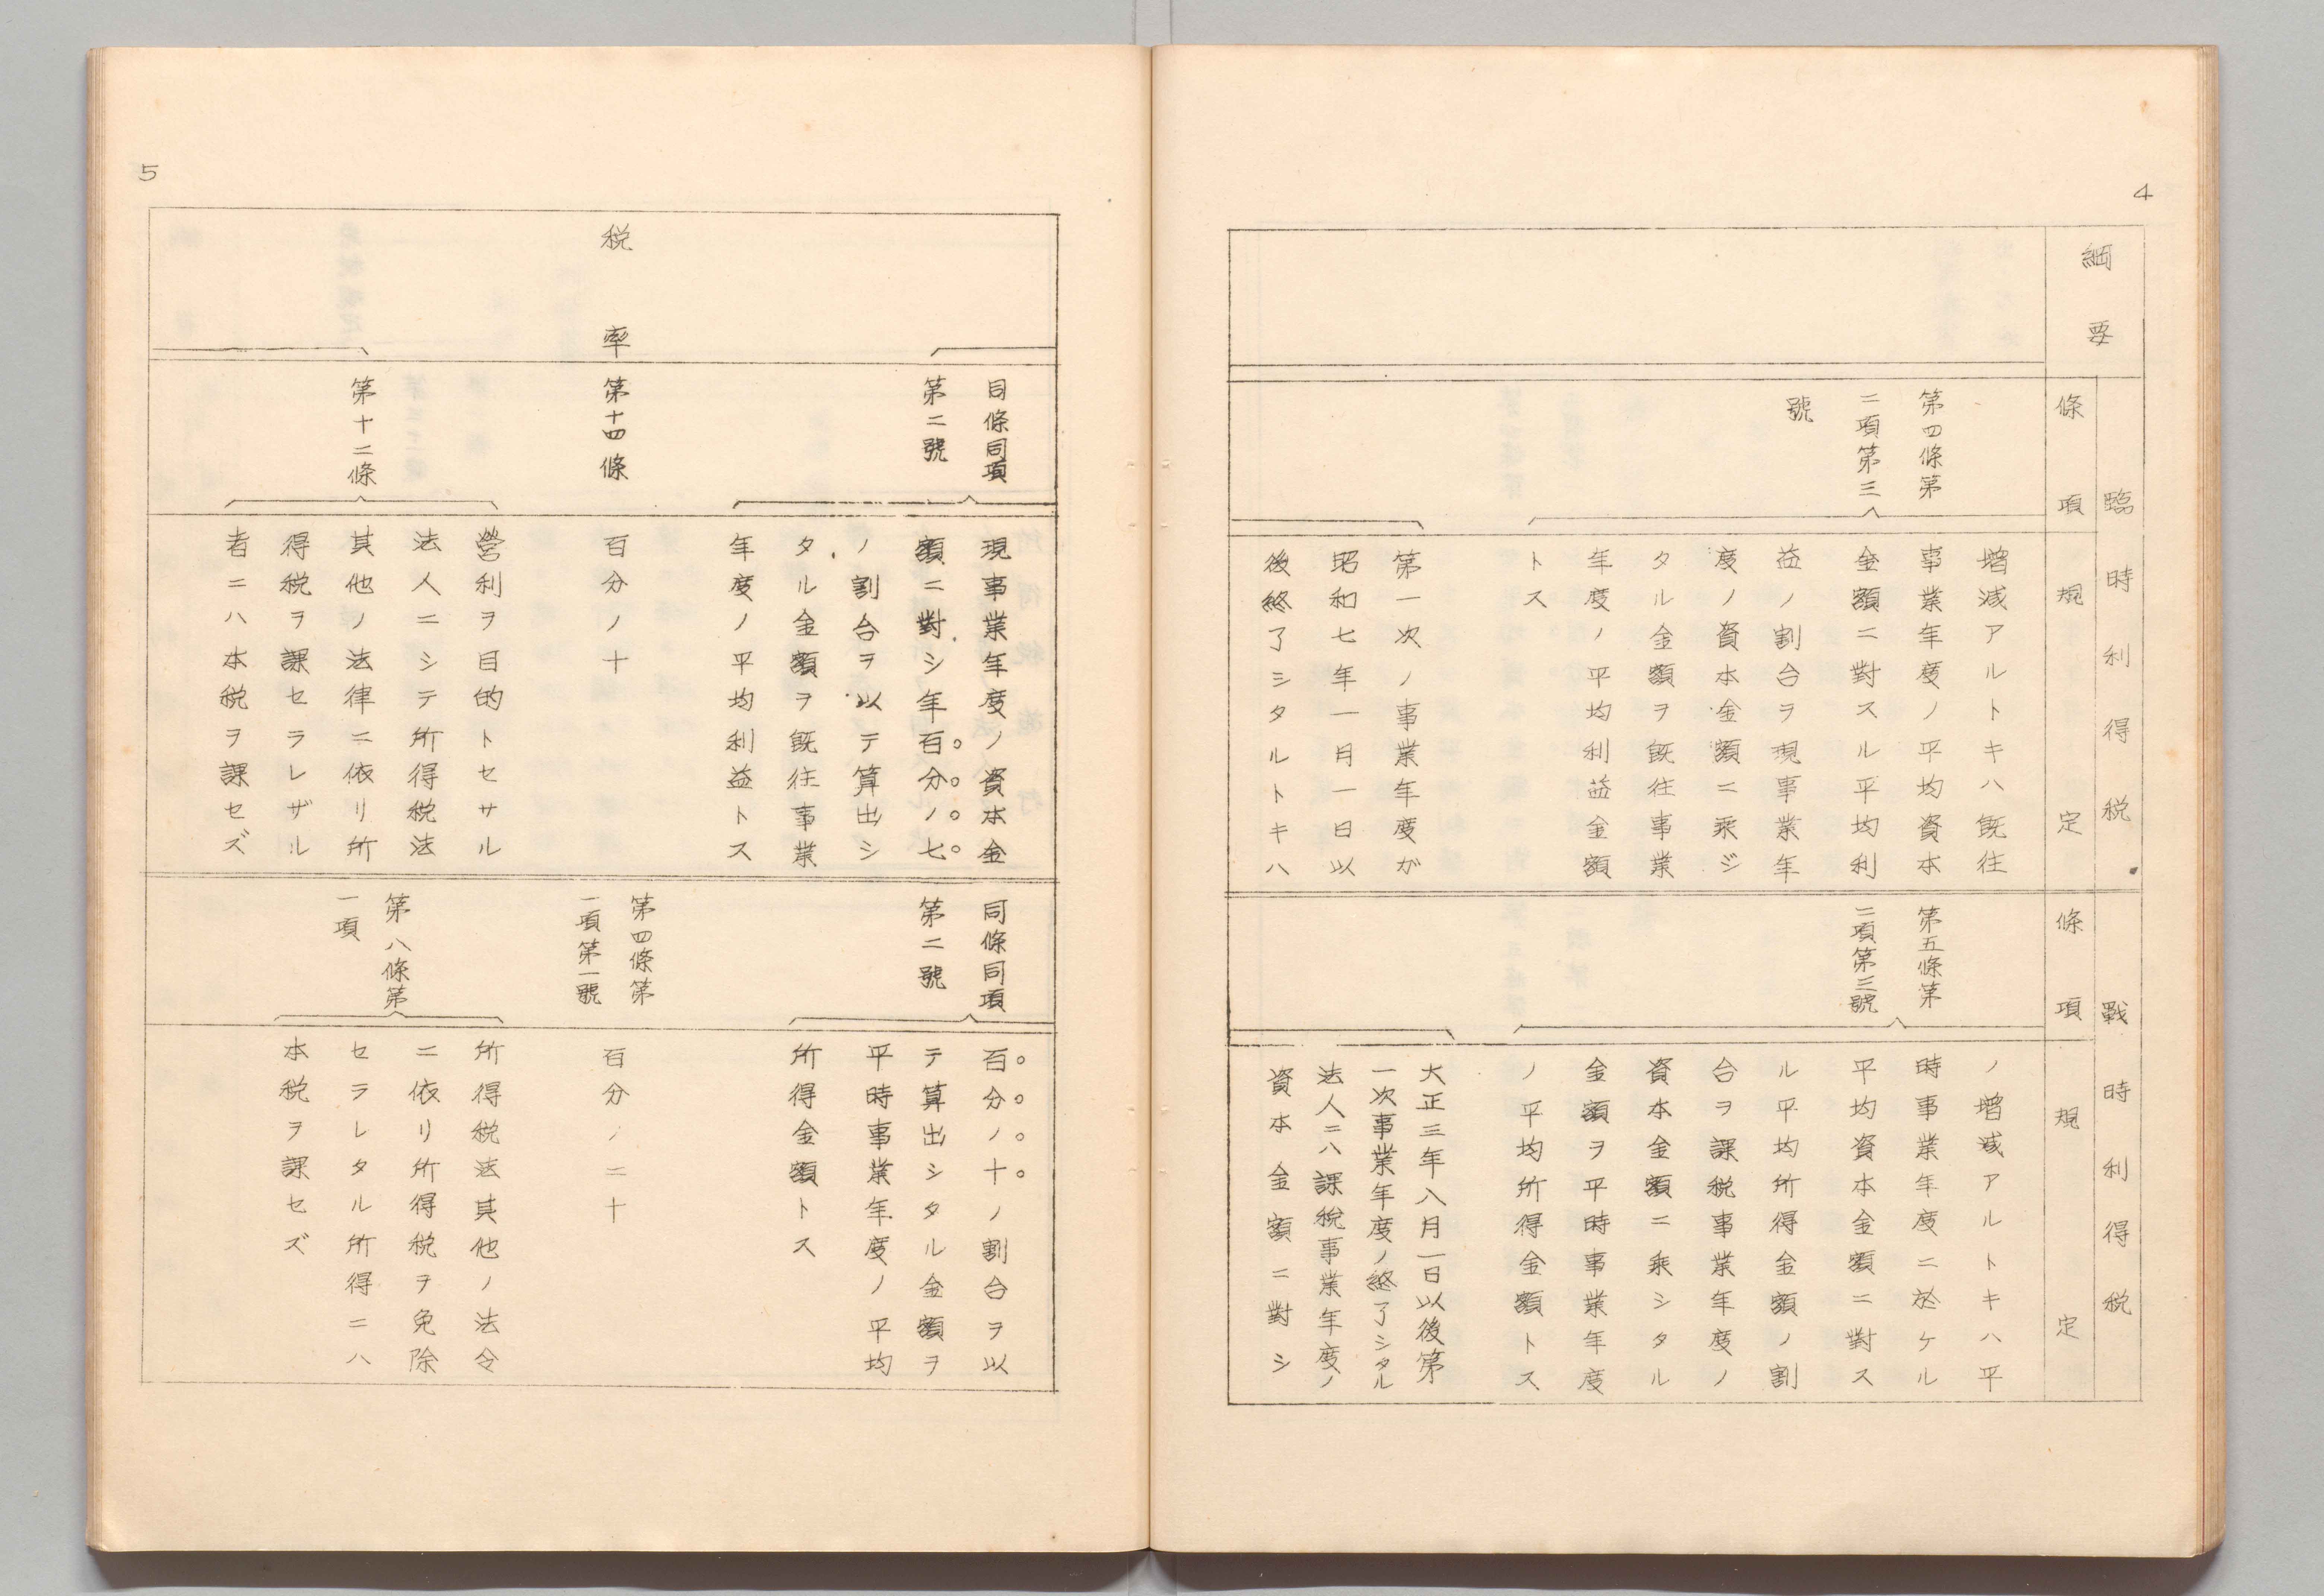 4
綱要
臨時利得税
條項
規定
戰時利得税
條項
規定
第四條第
二項第三
號
増減アルトキハ既往
事業年度ノ平均資本
金額ニ對スル平均利
益ノ割合ヲ現事業年
度ノ資本金額ニ乘ジ
タル金額ヲ既往事業
年度ノ平均利益金額
トス
第一次ノ事業年度ガ
昭和七年一月一日以
後終了シタルトキハ
第五條第
二項第三號
ノ増減アルトキハ平
時事業年度ニ於ケル
平均資本金額ニ對ス
ル平均所得金額ノ割
合ヲ課税事業年度ノ
資本金額ニ乘シタル
金額ヲ平時事業年度
ノ平均所得金額トス
大正三年八月一日以後第
一次事業年度ノ終了シタル
法人ニハ課税事業年度ノ
資本金額ニ對シ
5
税率
同條同項
第二號
現事業年度ノ資本金
額ニ對シ年百分ノ七
ノ割合ヲ以テ算出シ
タル金額ヲ既往事業
年度ノ平均利益トス
第十四條
百分ノ十
第十二條
營利ヲ目的トセサル
法人ニシテ所得税法
其他ノ法律ニ依リ所
得税ヲ課セラレザル
者ニハ本税ヲ課セズ
同條同項
第二號
百分ノ十ノ割合ヲ以
テ算出シタル金額ヲ
平時事業年度ノ平均
所得金額トス
第四條第
一項第一號
百分ノ二十
第八條第
一項
所得税法其他ノ法令
ニ依リ所得税ヲ免除
セラレタル所得ニハ
本税ヲ課セズ